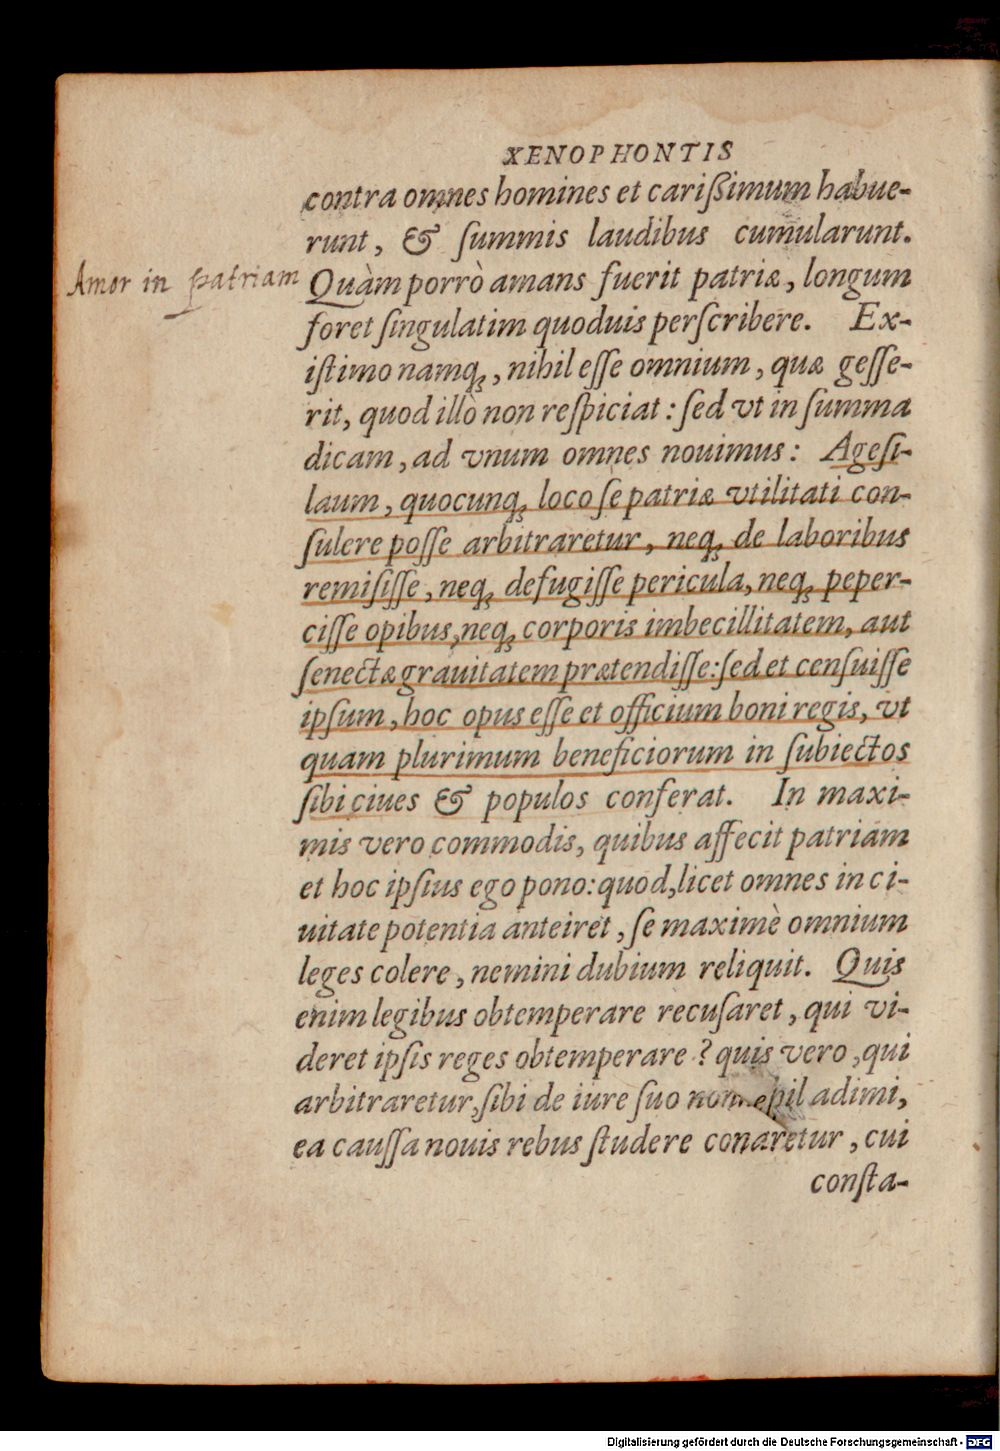 XENOPHONTIS
contra omnes homines et carißimum habue-
runt, & summis laudibus cumularunt.
Amor in patriam
Quàm porrò amans fuerit patriæ, longum
foret singulatim quoduis perscribere. Ex-
istimo namq;, nihil esse omnium, quæ gesse-
rit, quod illò non respiciat: sed vt in summa
dicam, ad vnum omnes nouimus: Agesi-
laum, quocunq; loco se patriæ vtilitati con-
sulere posse arbitraretur, neq; de laboribus
remisisse, neq; defugisse pericula, neq; peper-
cisse opibus, neq; corporis imbecillitatem, aut
senectæ grauitatem prætendisse: sed et censuisse
ipsum, hoc opus esse et officium boni regis, vt
quam plurimum beneficiorum in subiectos
sibi ciues & populos conferat. In maxi-
mis vero commodis, quibus affecit patriam
et hoc ipsius ego pono: quod, licet omnes in ci-
uitate potentia anteiret, se maximè omnium
leges colere, nemini dubium reliquit. Quis
enim legibus obtemperare recusaret, qui vi-
deret ipsis reges obtemperare? quis vero, qui
arbitraretur, sibi de iure suo adimi,
ea caussa nouis rebus studere conaretur, cui
consta-
Digitalisierung gefördert durch die Deutsche Forschungsgemeinschaft - DFG